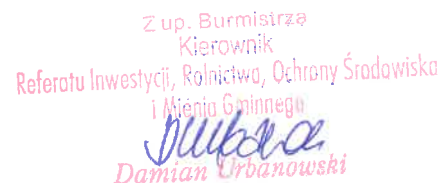 Z up. Burmistrza
Kierownik
Referatu Inwestycji, Rolnictwa, Ochrony Środowiska
i Mienia Gminnego
Damian Urbanowski